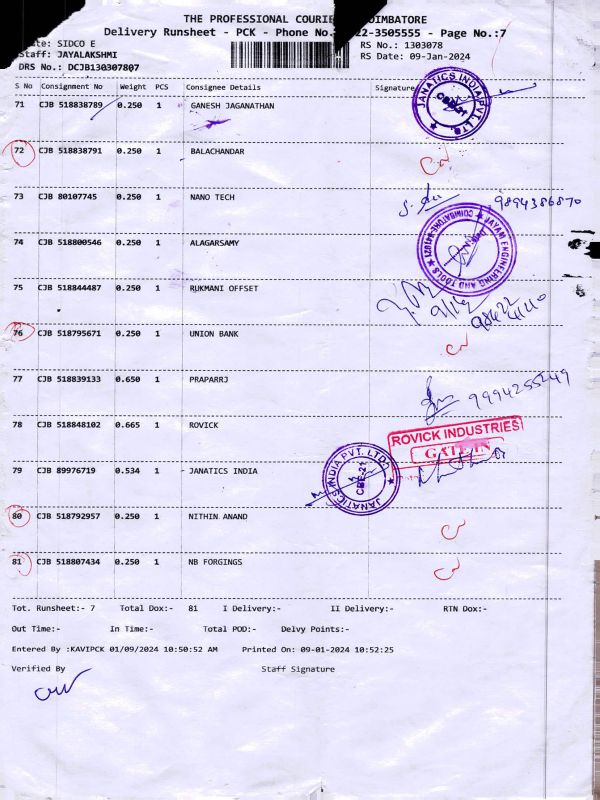 THE PROFESSIONAL COURIE OIMBATORE
Delivery Runsheet - PCK - Phone No. 22-3505555 - Page No.:7
te: SIDCO E
RS No.: 1303078
Staff: JAYALAKSHMI
RS Date: 09-Jan-2024
DRS No.: DCJB130307807
S No Consignment No Weight PCS Consignee Details Signature
71 CJB 518838789 0.250 1 GANESH JAGANATHAN
JANATICS INDIA PVT. LTD. CBE-21
72 CJB 518838791 0.250 1 BALACHANDAR
73 CJB 80107745 0.250 1 NANO TECH
9894386870
74 CJB 518800546 0.250 1 ALAGARSAMY
JAYAM ENGINEERING AND TOOLS COIMBATORE-641021
75 CJB 518844487 0.250 1 RUKMANI OFFSET
76 CJB 518795671 0.250 1 UNION BANK
77 CJB 518839133 0.650 1 PRAPARRJ
9994255249
78 CJB 518848102 0.665 1 ROVICK
ROVICK INDUSTRIES
GATE IN
79 CJB 89976719 0.534 1 JANATICS INDIA
JANATICS INDIA PVT. LTD. CBE-21
80 CJB 518792957 0.250 1 NITHIN ANAND
81 CJB 518807434 0.250 1 NB FORGINGS
Tot. Runsheet:- 7 Total Dox:- 81 I Delivery:- II Delivery:- RTN Dox:-
Out Time:- In Time:- Total POD:- Delvy Points:-
Entered By :KAVIPCK 01/09/2024 10:50:52 AM Printed On: 09-01-2024 10:52:25
Verified By Staff Signature